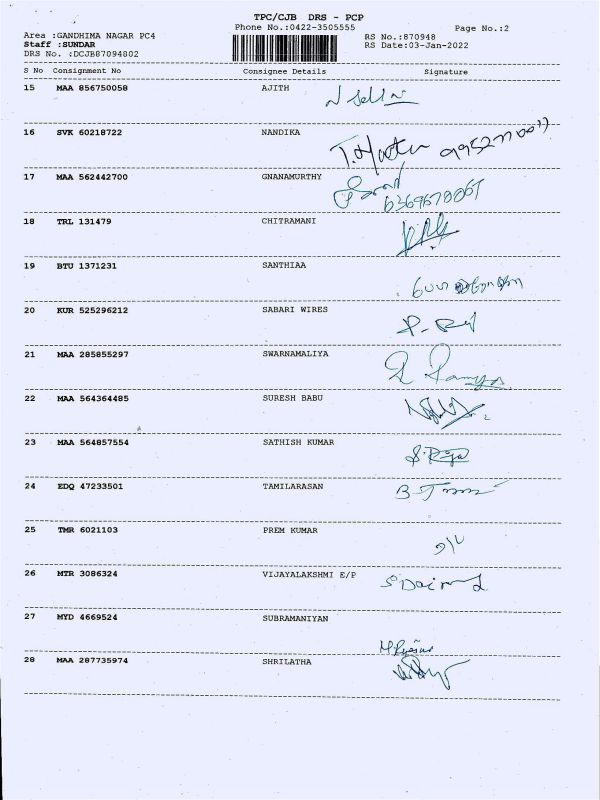 TPC/CJB DRS - PCP
Phone No.:0422-3505555
Page No.:2
Area :GANDHIMA NAGAR PC4
RS No.:870948
Staff :SUNDAR
RS Date:03-Jan-2022
DRS No. :DCJB87094802
S No Consignment No Consignee Details Signature
15 MAA 856750058 AJITH
16 SVK 60218722 NANDIKA
17 MAA 562442700 GNANAMURTHY
18 TRL 131479 CHITRAMANI
19 BTU 1371231 SANTHIAA
20 KUR 525296212 SABARI WIRES
21 MAA 285855297 SWARNAMALIYA
22 MAA 564364485 SURESH BABU
23 MAA 564857554 SATHISH KUMAR
24 EDQ 47233501 TAMILARASAN
25 TMR 6021103 PREM KUMAR
26 MTR 3086324 VIJAYALAKSHMI E/P
27 MYD 4669524 SUBRAMANIYAN
28 MAA 287735974 SHRILATHA